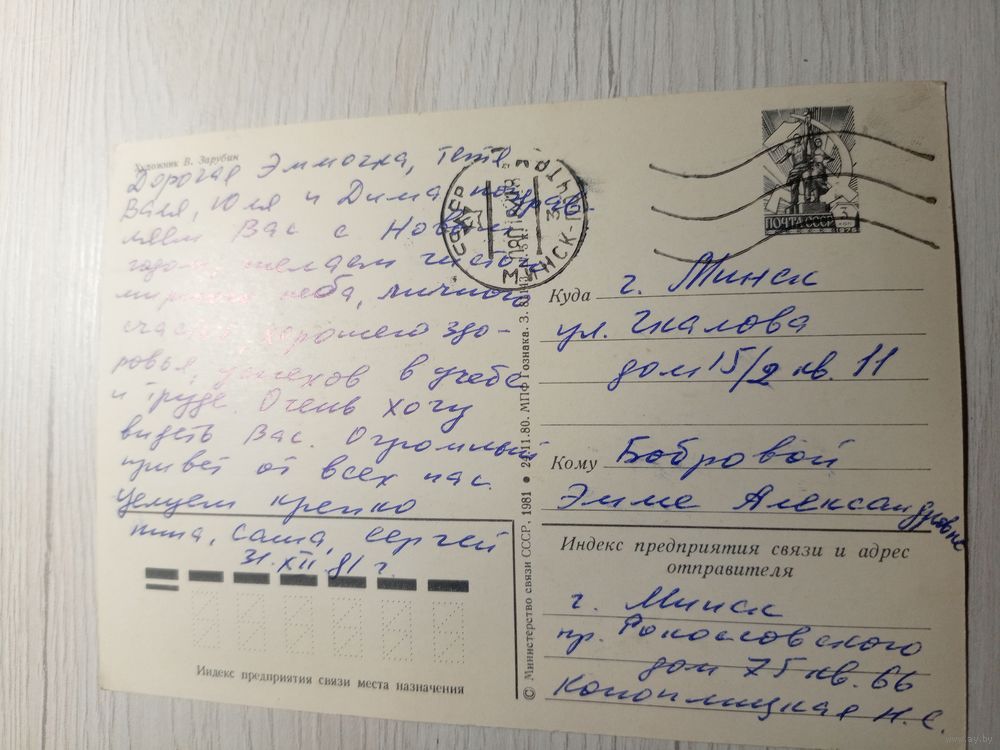 Художник В. Зарубин
Дорогая Эммочка, тётя
Валя, Юля и Дима поздрав-
ляем Вас с Новым
годом, желаем чистого
мирного неба, личного
счастья, хорошего здо-
ровья, успехов в учебе
и труде. Очень хочу
видеть Вас. Огромный
привет от всех нас.
Целуем крепко
нина, Саша, Сергей
31.XII.81 г.
Индекс предприятия связи места назначения
© Министерство связи СССР, 1981 • 24.11.80. МПФ Гознака. З.
СССР
МИНСК-
ПОЧТА СССР
1976
Куда г. Минск
ул. Чкалова
дом 15/2 кв. 11
Кому Бобровой
Эмме Александровне
Индекс предприятия связи и адрес
отправителя
г. Минск
пр. Рокоссовского
дом 75 кв. 66
Коноплицкая Н. С.
www.ay.by